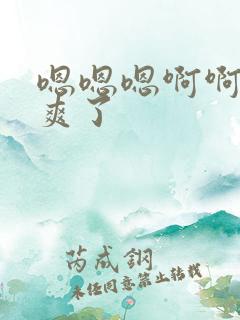 嗯嗯嗯啊啊
爽了
芮成钢
未经同意禁止转载